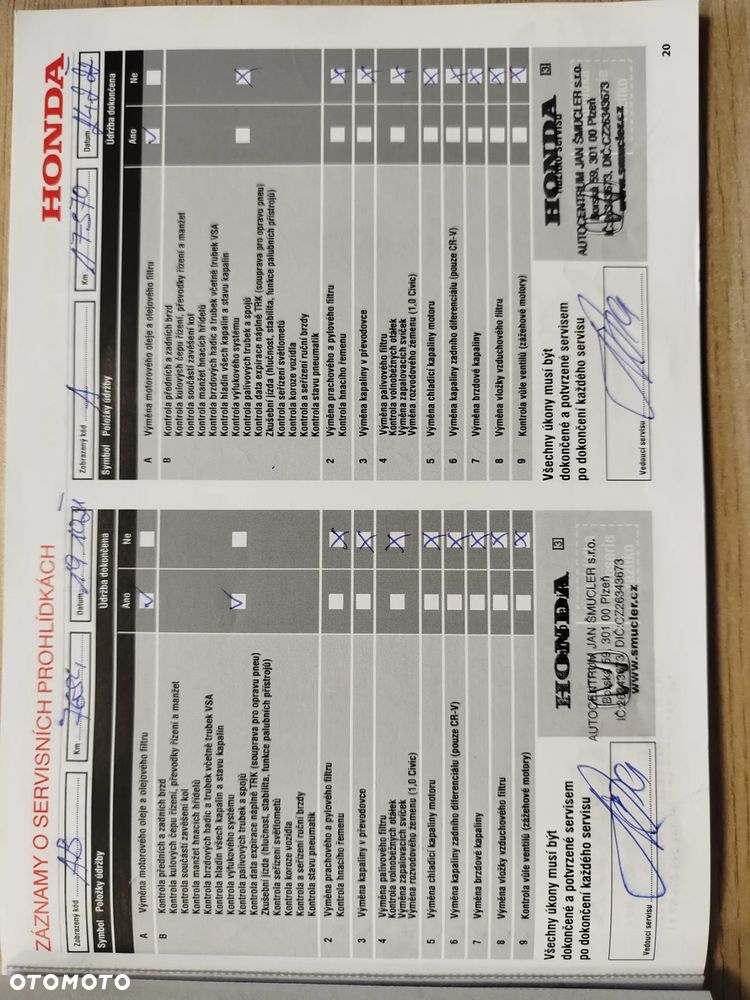 ZÁZNAMY O SERVISNÍCH PROHLÍDKÁCH
HONDA
Zobrazený kód AB
Km
Datum 19.10.21
Symbol Položky údržby
Údržba dokončena
Ano Ne
A Výměna motorového oleje a olejového filtru
B Kontrola předních a zadních brzd
Kontrola kulových čepu řízení, převodky řízení a manžet
Kontrola součastí zavěšení kol
Kontrola manžet hnacích hřídelů
Kontrola brzdových hadic a trubek včetně trubek VSA
Kontrola hladin všech kapalin a stavu kapalin
Kontrola výfukového systému
Kontrola palivových trubek a spojů
Kontrola data expirace náplně TRK (souprava pro opravu pneu)
Zkušební jízda (hlučnost, stabilita, funkce palubních přístrojů)
Kontrola seřízení světlometů
Kontrola koroze vozidla
Kontrola a seřízení ruční brzdy
Kontrola stavu pneumatik
2 Výměna prachového a pylového filtru
Kontrola hnacího řemenu
3 Výměna kapaliny v převodovce
4 Výměna palivového filtru
Kontrola volnoběžných otáček
Výměna zapalovacích svíček
Výměna rozvodového řemenu (1,0 Civic)
5 Výměna chladicí kapaliny motoru
6 Výměna kapaliny zadního diferenciálu (pouze CR-V)
7 Výměna brzdové kapaliny
8 Výměna vložky vzduchového filtru
9 Kontrola vůle ventilů (zážehové motory)
Všechny úkony musí být
dokončené a potvrzené servisem
po dokončení každého servisu
Vedoucí servisu
HONDA
3
AUTOCENTRUM JAN ŠMUCLER s.r.o.
Borská 59, 301 00 Plzeň
IČ:26343673, DIČ:CZ26343673
www.smucler.cz
Zobrazený kód A
Km 17570
Datum
Symbol Položky údržby
Údržba dokončena
Ano Ne
A Výměna motorového oleje a olejového filtru
B Kontrola předních a zadních brzd
Kontrola kulových čepu řízení, převodky řízení a manžet
Kontrola součastí zavěšení kol
Kontrola manžet hnacích hřídelů
Kontrola brzdových hadic a trubek včetně trubek VSA
Kontrola hladin všech kapalin a stavu kapalin
Kontrola výfukového systému
Kontrola palivových trubek a spojů
Kontrola data expirace náplně TRK (souprava pro opravu pneu)
Zkušební jízda (hlučnost, stabilita, funkce palubních přístrojů)
Kontrola seřízení světlometů
Kontrola koroze vozidla
Kontrola a seřízení ruční brzdy
Kontrola stavu pneumatik
2 Výměna prachového a pylového filtru
Kontrola hnacího řemenu
3 Výměna kapaliny v převodovce
4 Výměna palivového filtru
Kontrola volnoběžných otáček
Výměna zapalovacích svíček
Výměna rozvodového řemenu (1,0 Civic)
5 Výměna chladicí kapaliny motoru
6 Výměna kapaliny zadního diferenciálu (pouze CR-V)
7 Výměna brzdové kapaliny
8 Výměna vložky vzduchového filtru
9 Kontrola vůle ventilů (zážehové motory)
Všechny úkony musí být
dokončené a potvrzené servisem
po dokončení každého servisu
Vedoucí servisu
HONDA
3
razítko servisu
AUTOCENTRUM JAN ŠMUCLER s.r.o.
Borská 59, 301 00 Plzeň
IČ:26343673, DIČ:CZ26343673
www.smucler.cz
20
OTOMOTO